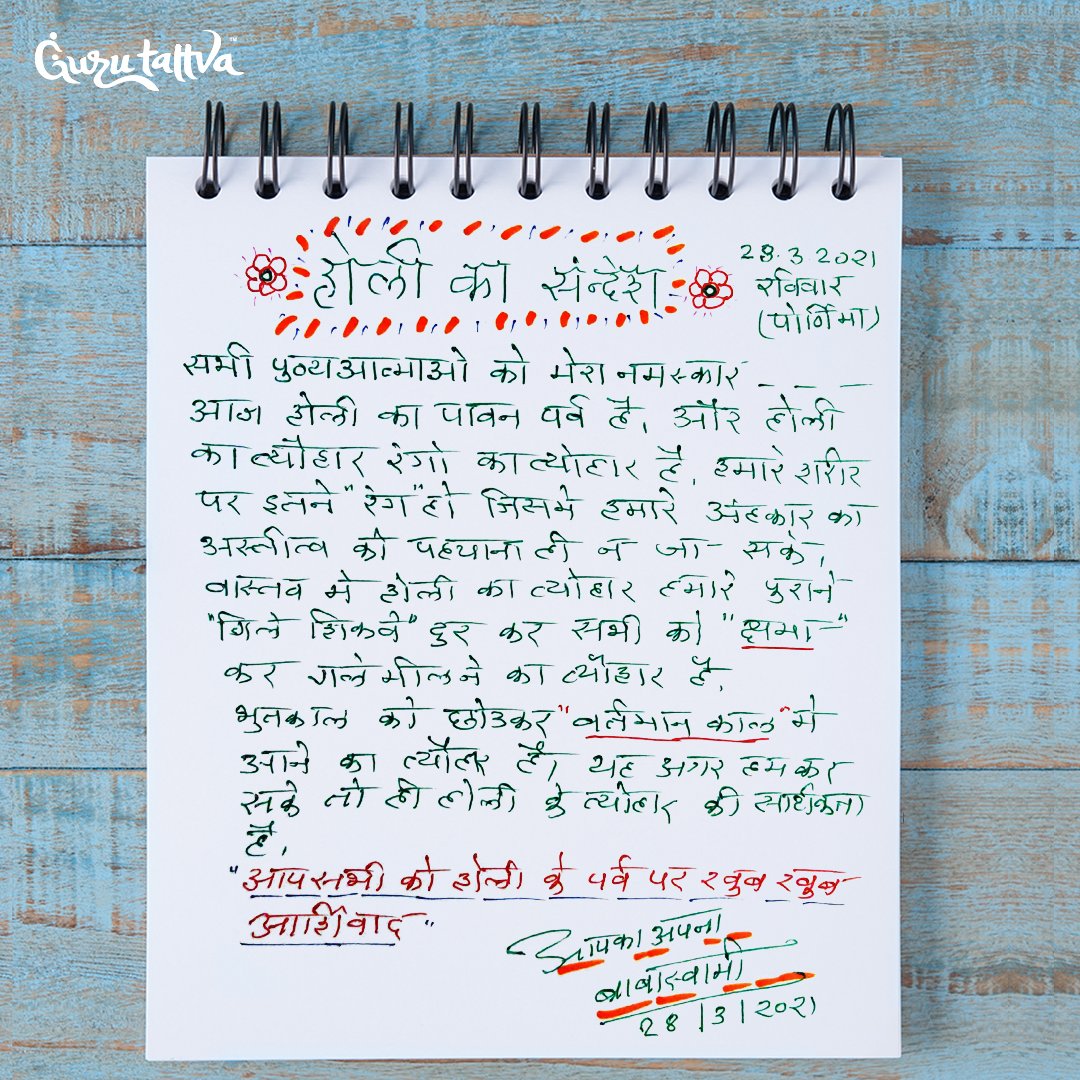 Gurutattva™
होली का संन्देश
28.3.2021
रविवार
(पोर्निमा)
सभी पुण्यआत्माओ को मेरा नमस्कार - - -
आज होली का पावन पर्व है, और होली
का त्यौहार रंगो का त्योहार है, हमारे शरीर
पर इतने "रंग" हो जिसमे हमारे अंहकार का
अस्तीत्व को पहचाना ही न जा सके,
वास्तव मे होली का त्योहार हमारे पुराने
"गिले शिकवे" दुर कर सभी को "क्षमा"
कर गले मीलने का त्यौहार है,
भुतकाल को छोडकर "वर्तमान काल" मे
आने का त्यौहार है, यह अगर हम कर
सके तो ही होली के त्योहार की सार्थकता
है,
"आप सभी को होली के पर्व पर खुब खुब
आर्शिवाद"
आपका अपना
बाबास्वामी
28/3/2021